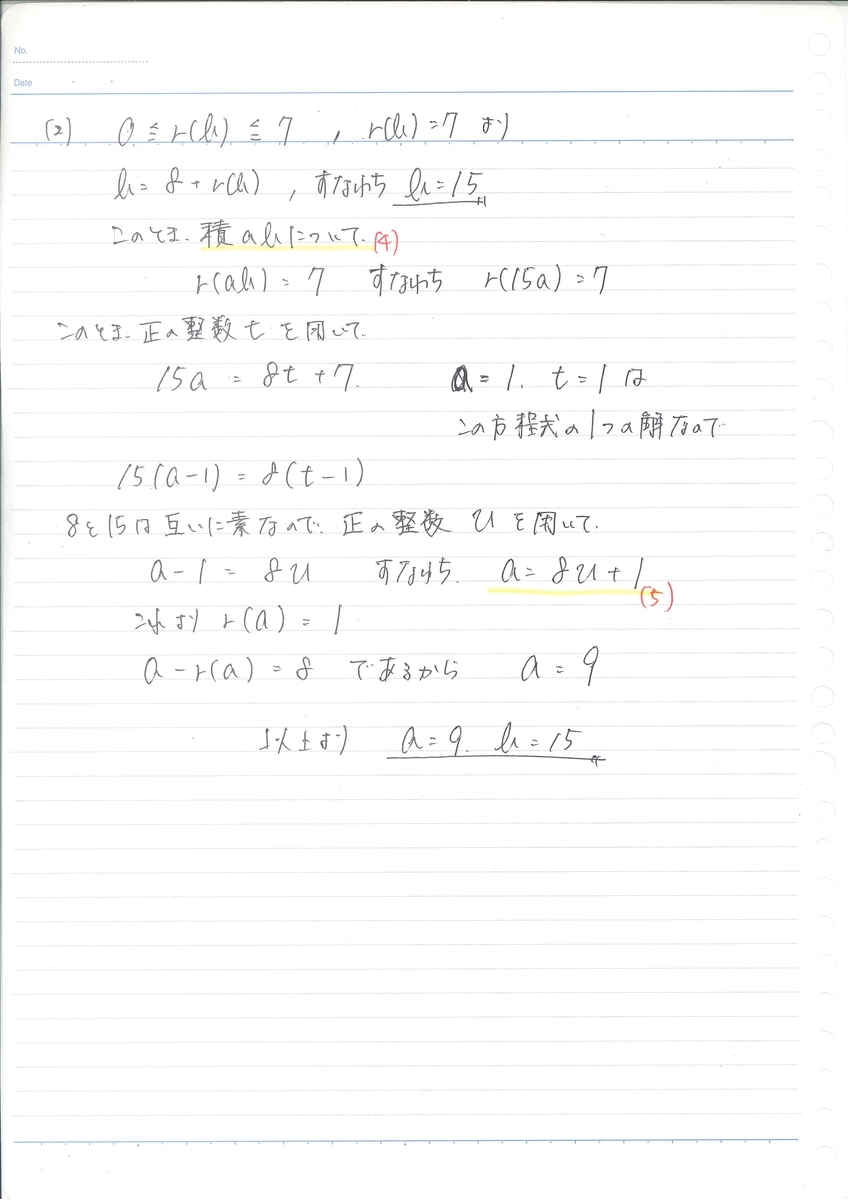 No.
Date
(2) 0 ≦ r(b) ≦ 7 , r(b) = 7 より
b = 8 + r(b) , すなわち b = 15
このとき、積 ab について、(4)
r(ab) = 7 すなわち r(15a) = 7
このとき、正の整数 t を用いて、
15a = 8t + 7. a = 1, t = 1 は
この方程式の1つの解なので
15(a-1) = 8(t-1)
8と15は互いに素なので、正の整数 u を用いて、
a - 1 = 8u すなわち、 a = 8u + 1 (5)
これより r(a) = 1
a - r(a) = 8 であるから a = 9
以上より a = 9, b = 15